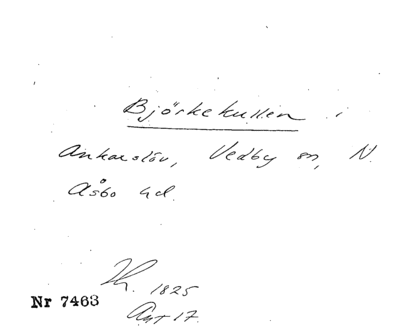 Björkekullen i
Ankarslöv, Vedby sn, N.
Åsbo hd.
1825
Nr 7463
Ant 17